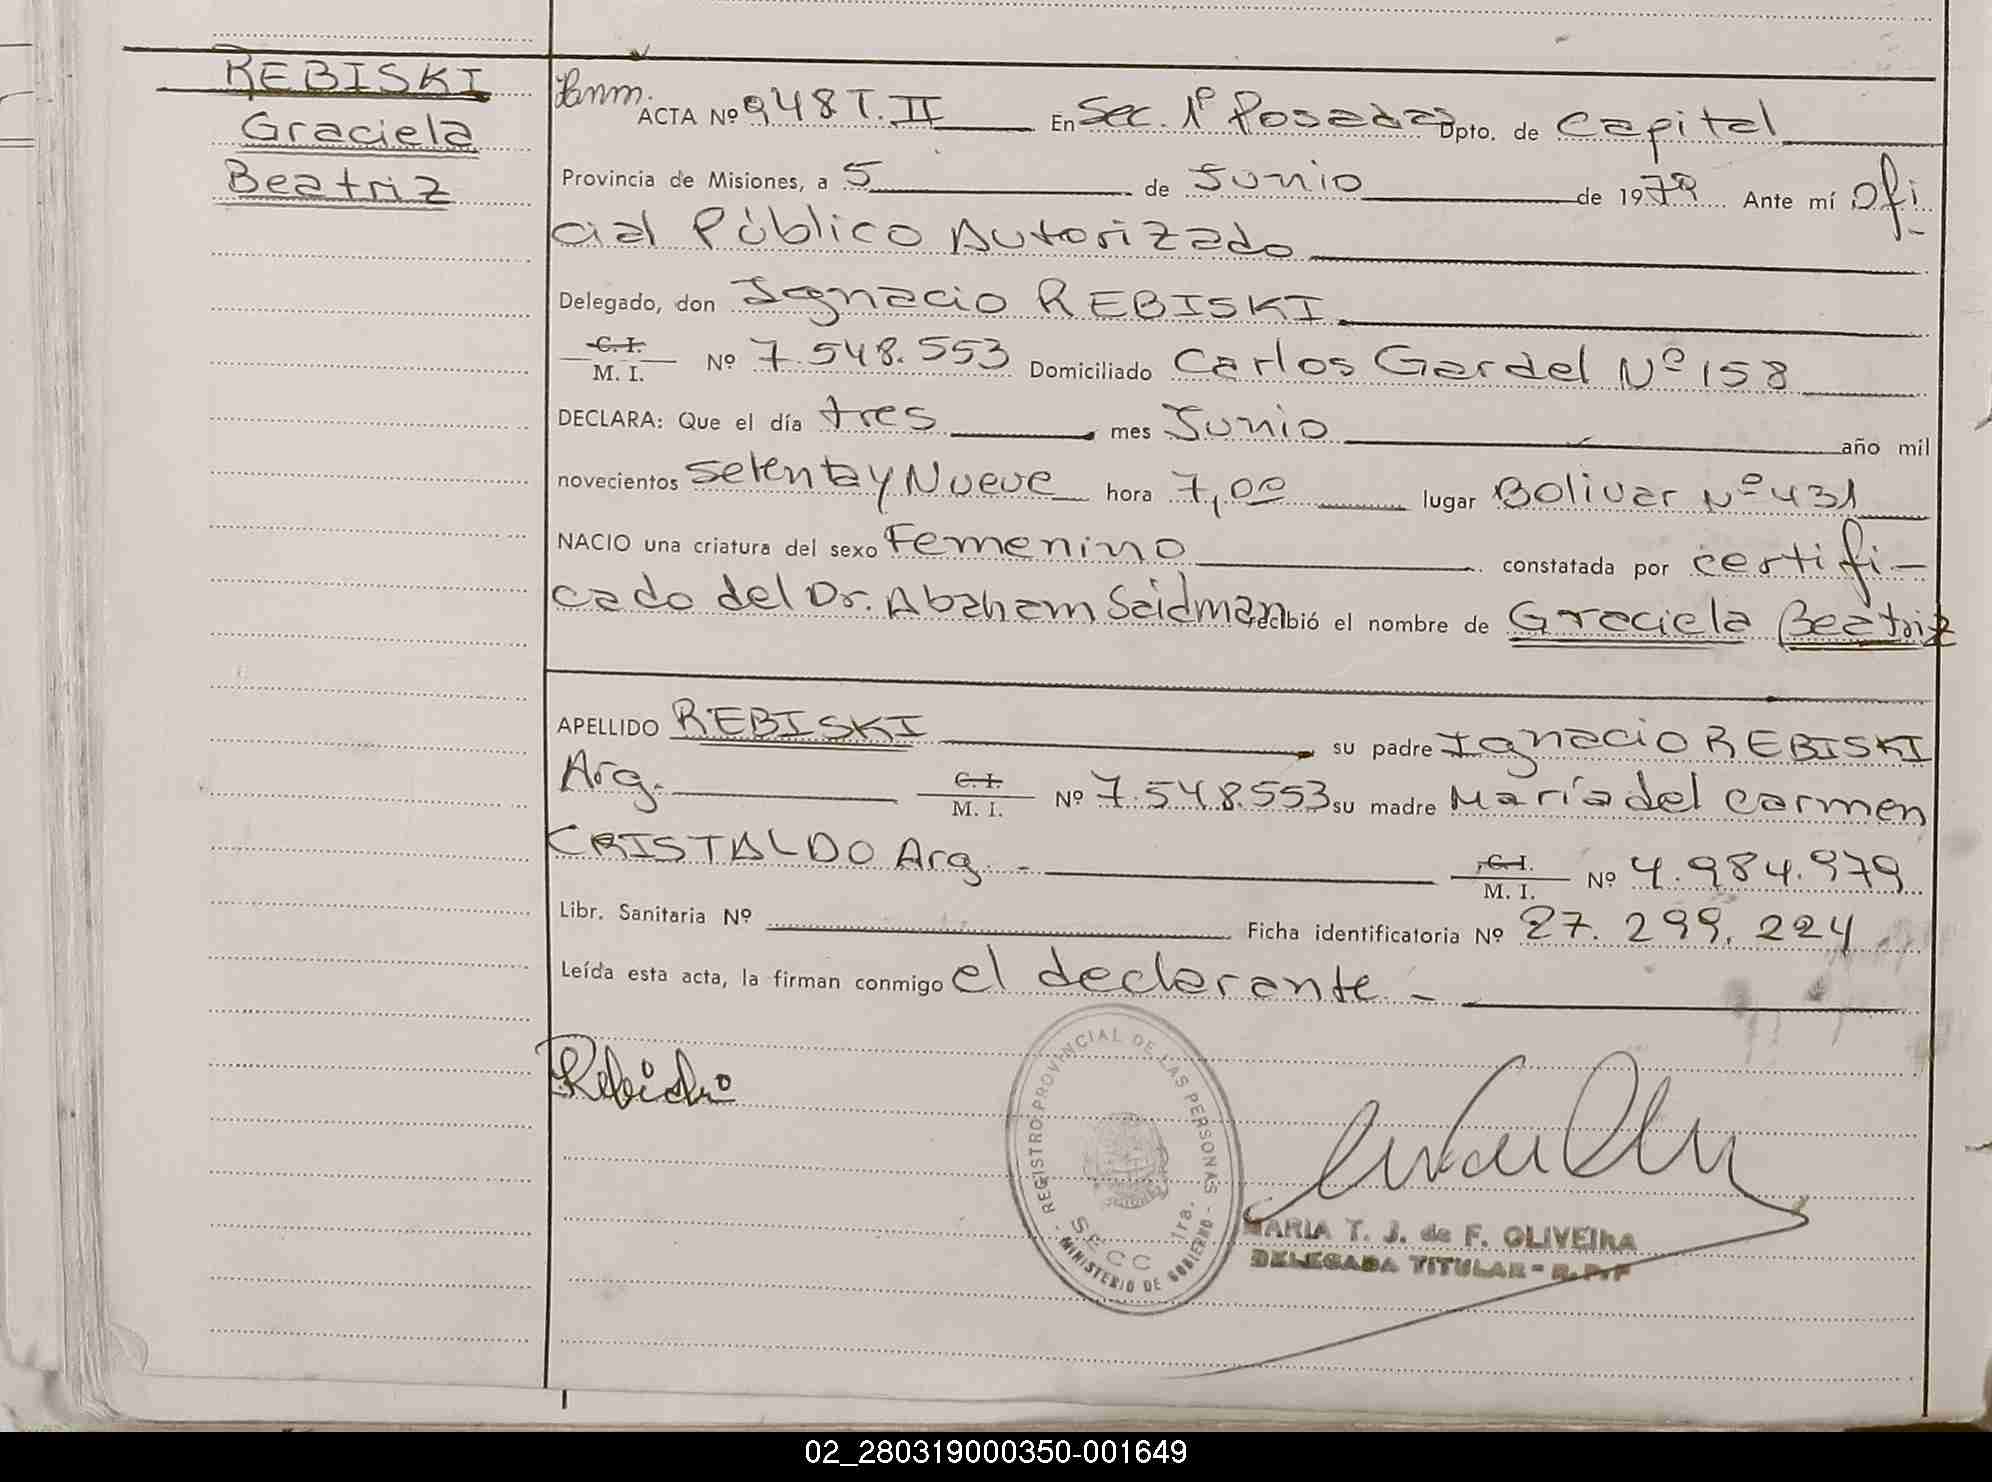 REBISKI
Graciela
Beatriz
ACTA Nº 948 T. II En Sec. 1º Posadas Dpto. de Capital
Provincia de Misiones, a 5 de Junio de 1979 Ante mí Ofi-
cial Público Autorizado
Delegado, don Ignacio REBISKI
C. I.
M. I. Nº 7.548.553 Domiciliado Carlos Gardel Nº 158
DECLARA: Que el día tres mes Junio año mil
novecientos setenta y Nueve hora 7,00 lugar Bolivar Nº 431
NACIO una criatura del sexo Femenino constatada por certifi-
cado del Dr. Abaham Seidman recibió el nombre de Graciela Beatriz
APELLIDO REBISKI su padre Ignacio REBISKI
Arg. C. I. M. I. Nº 7.548.553 su madre María del Carmen
CRISTALDO Arg. - C. I. M. I. Nº 4.984.979
Libr. Sanitaria Nº Ficha identificatoria Nº 27.299.224
Leída esta acta, la firman conmigo el declarante -
Rebiski
REGISTRO PROVINCIAL DE LAS PERSONAS
SECC 1ra.
MINISTERIO DE GOBIERNO
MARIA T. J. de F. OLIVEIRA
DELEGADA TITULAR - R. P. P
02_280319000350-001649